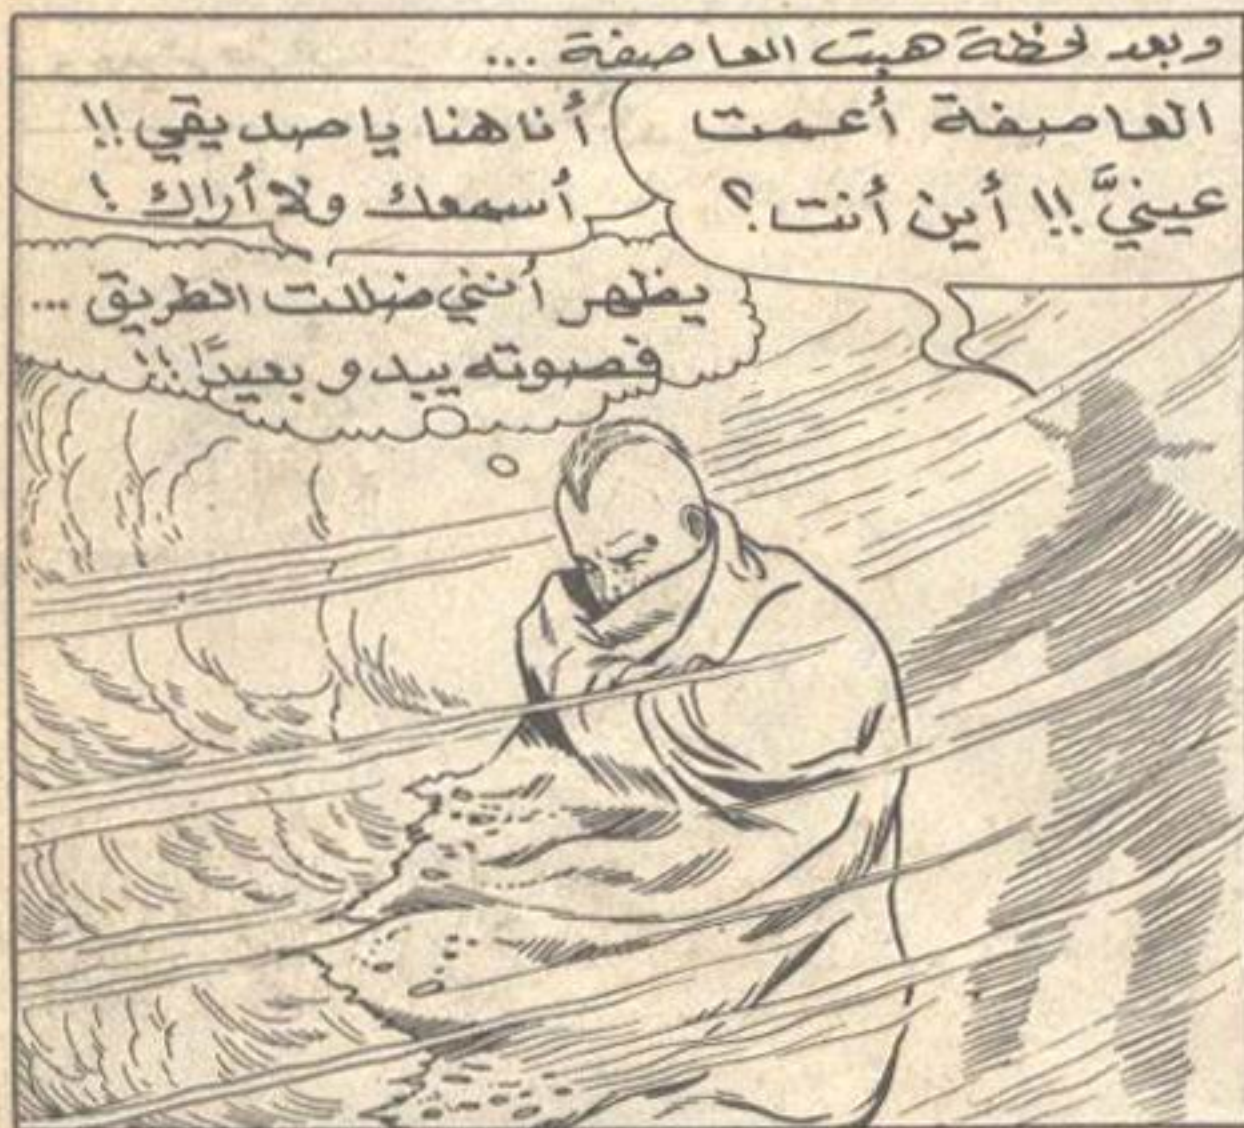 وبعد لحظة هبت العاصفة ...
العاصفة أعمت
عينيَّ !! أين أنت ؟
أنا هنا يا صديقي !!
أسمعك ولا أراك !
يظهر أنني ضللت الطريق ...
فصوته يبدو بعيدًا !!